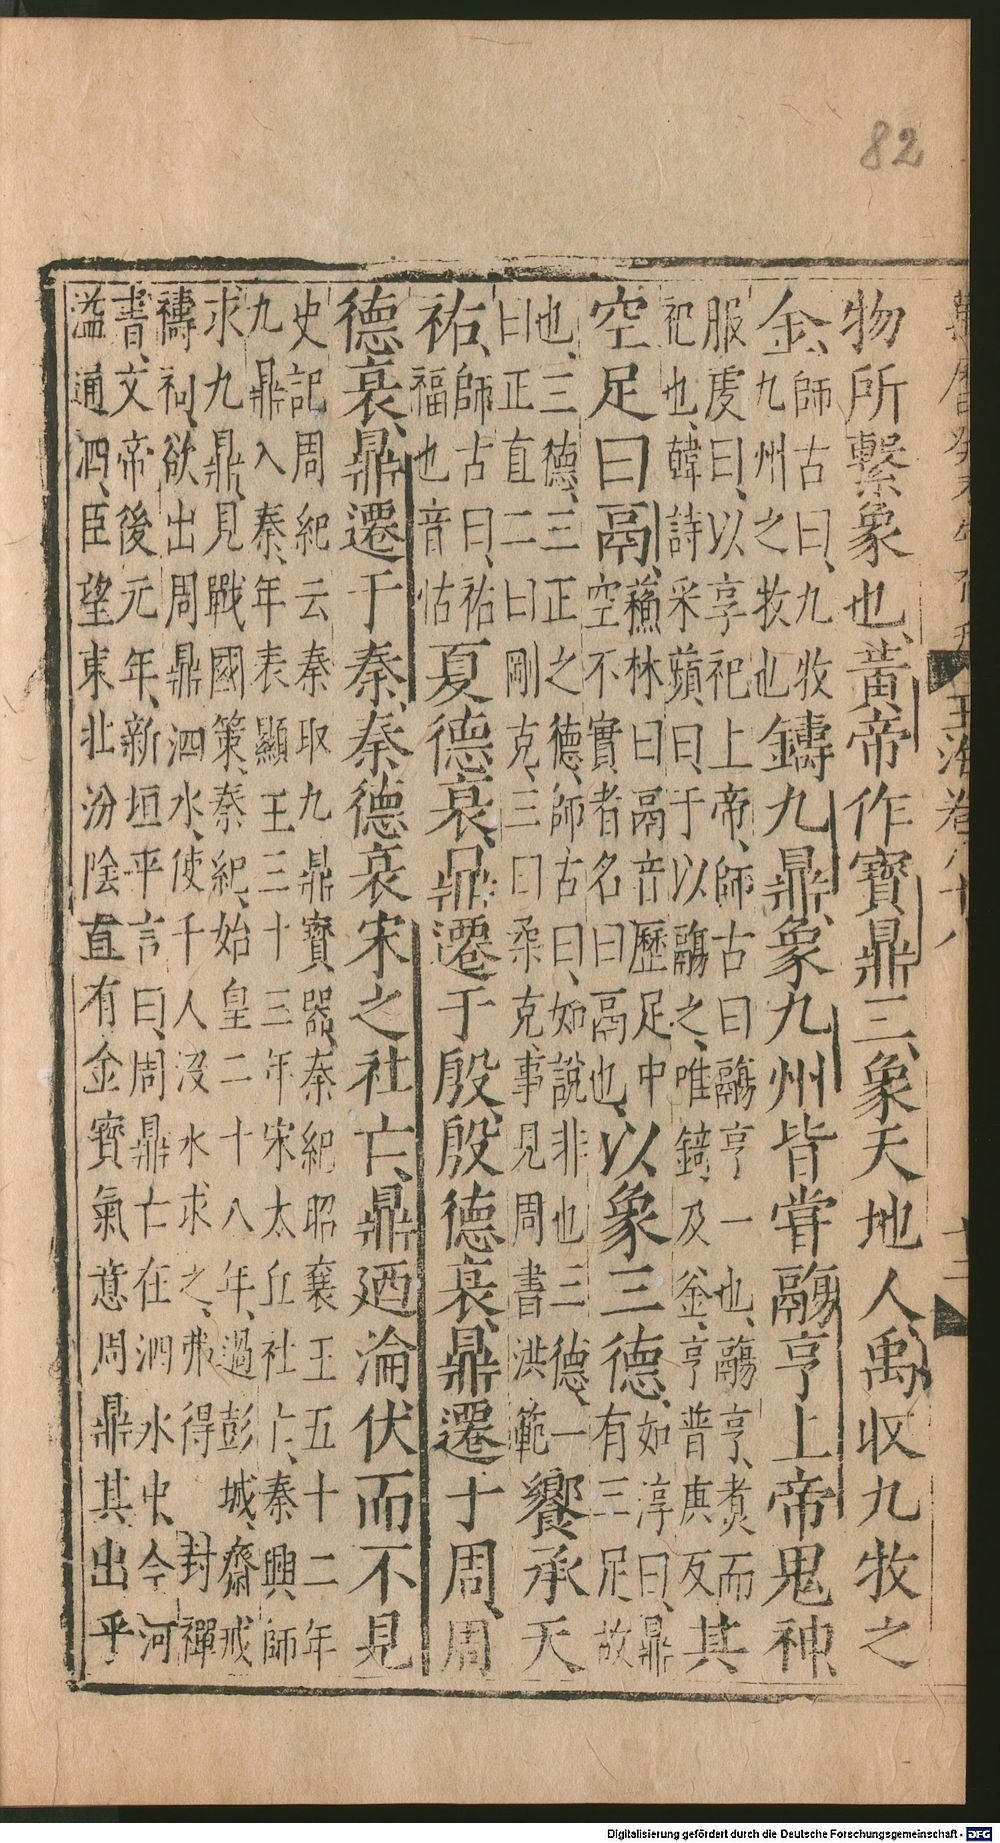 玉海卷八十八
十二
物所繫象也、黃帝作寶鼎三、象天地人、禹收九牧之
金、師古曰、九牧
九州之牧也
鑄九鼎、象九州、皆嘗鬺亨上帝鬼神、
服虔曰、以享祀上帝、師古曰鬺亨一也、鬺亨、煮而
祀也、韓詩采蘋曰、于以鬺之、唯錡及釜、亨普庚反
其
空足曰鬲、蘇林曰鬲音歷足中
空不實者名曰鬲也、
以象三德、如淳曰、鼎
有三足故
也、三德、三正之德、師古曰、如說非也三德、一
曰正直二曰剛克、三曰柔克、事見周書洪範
饗承天
祐、師古曰、祐
福也音怙
夏德衰、鼎遷于殷、殷德衰、鼎遷于周、周
德衰、鼎遷于秦、秦德衰宋之社亡、鼎迺淪伏而不見
史記周紀云秦取九鼎寶器、秦紀昭襄王五十二年
九鼎入秦、年表顯王三十三年宋太丘社亡、秦興師
求九鼎、見戰國策、秦紀、始皇二十八年、過彭城、齋戒
禱祠、欲出周鼎泗水、使千人沒水求之、弗得 封禪
書、文帝後元年、新垣平言曰、周鼎亡在泗水中、今河
溢通泗、臣望東北汾陰直有金寶氣意周鼎其出乎
82
Digitalisierung gefördert durch die Deutsche Forschungsgemeinschaft - DFG